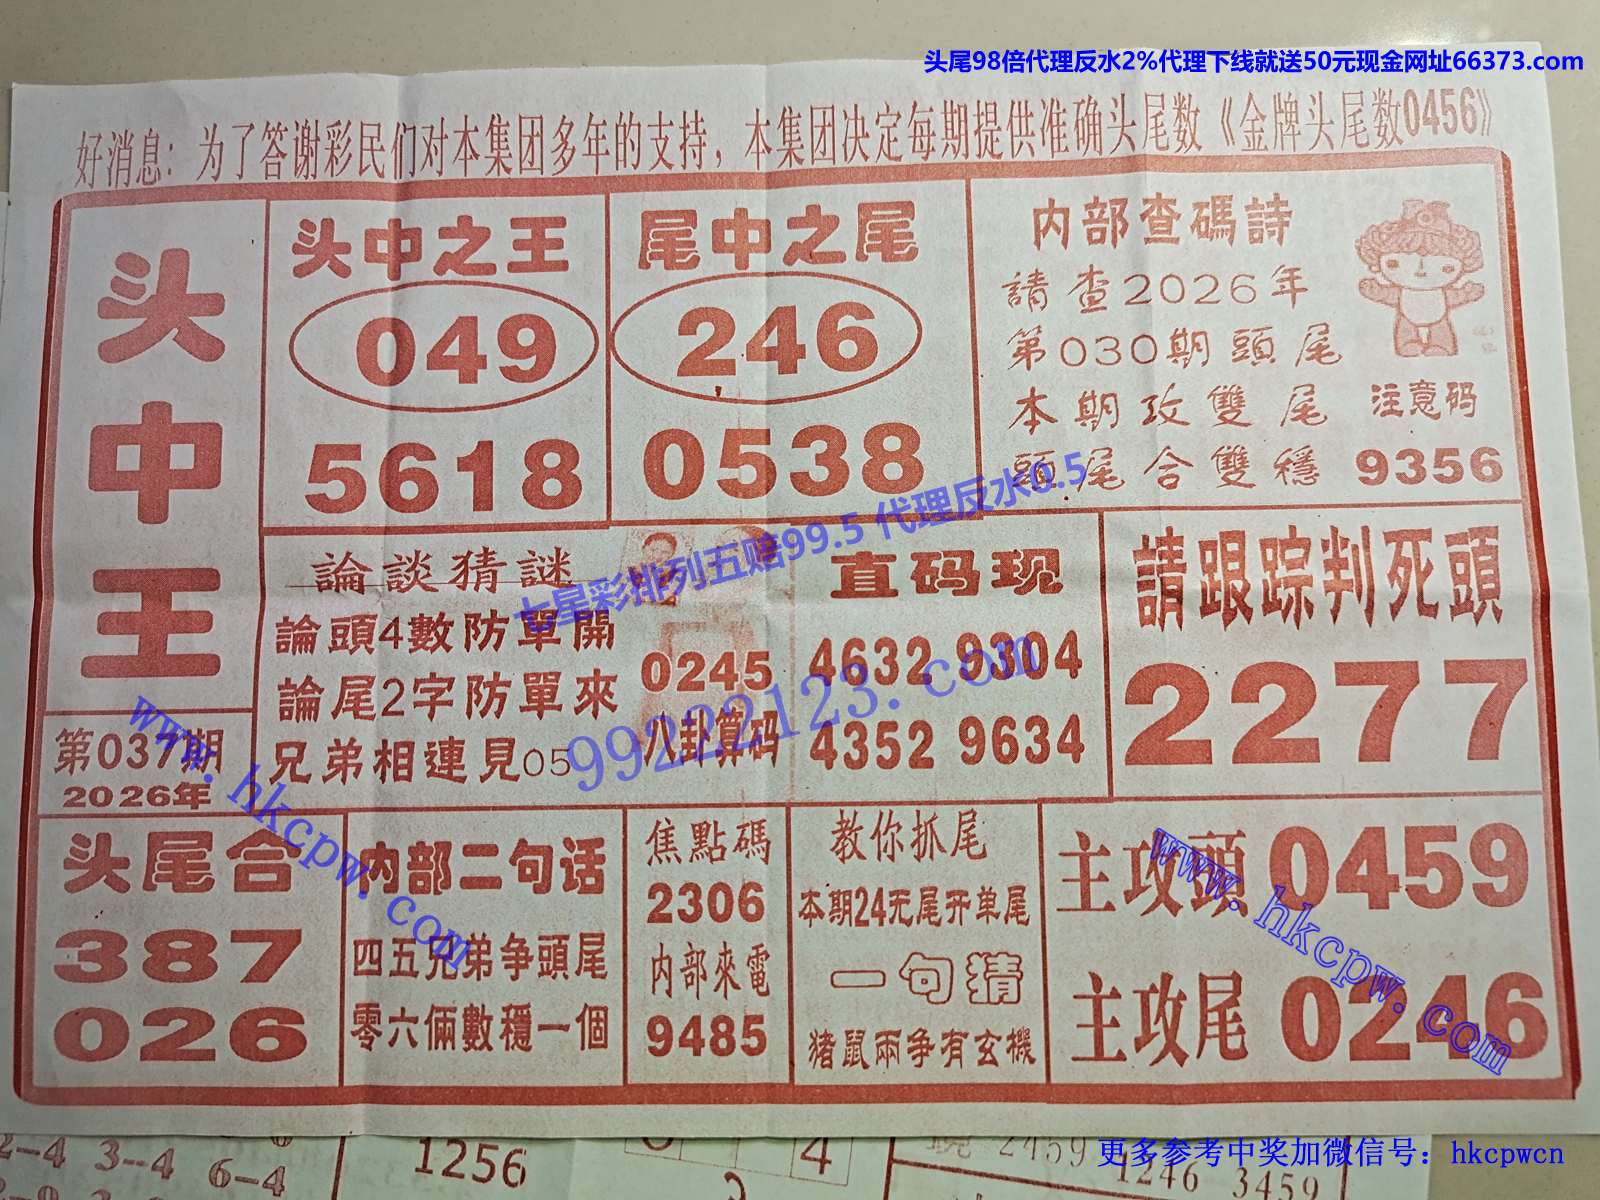 头尾98倍代理反水2%代理下线就送50元现金网址66373.com
好消息：为了答谢彩民们对本集团多年的支持，本集团决定每期提供准确头尾数《金牌头尾数0456》
头中王
第037期
2026年
头中之王
049
5618
尾中之尾
246
0538
内部查碼詩
請查2026年
第030期頭尾
本期攻雙尾
頭尾合雙穩
注意码
9356
論談猜謎
論頭4數防單開
論尾2字防單來
兄弟相連見05
0245
八卦算码
直码现
4632 9304
4352 9634
請跟踪判死頭
2277
头尾合
387
026
内部二句话
四五兄弟争頭尾
零六倆數穩一個
焦點碼
2306
内部來電
9485
教你抓尾
本期24无尾开单尾
一句猜
猪鼠兩争有玄機
主攻頭 0459
主攻尾 0246
七星彩排列五赔99.5 代理反水0.5
99222123.com
www.hkcpw.com
www.hkcpw.com
2-4 3-4 6-4
1256
4
2459
1246 3459
更多参考中奖加微信号：hkcpwcn